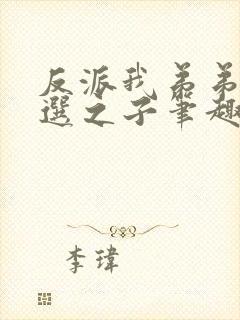 反派我弟弟
選之子筆趣
李瑋